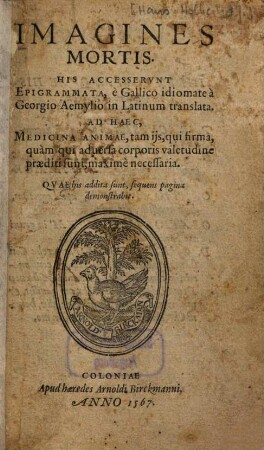 IMAGINES
MORTIS.
HIS ACCESSERVNT
EPIGRAMMATA, è Gallico idiomate à
Georgio Aemylio in Latinum translata.
AD HAEC,
MEDICINA ANIMAE, tam ijs, qui firma,
quàm qui aduersa corporis valetudine
præditi sunt, maximè necessaria.
QVAE his addita sunt, sequens pagina
demonstrabit.
COLONIAE
Apud hæredes Arnoldi Birckmanni.
ANNO 1567.